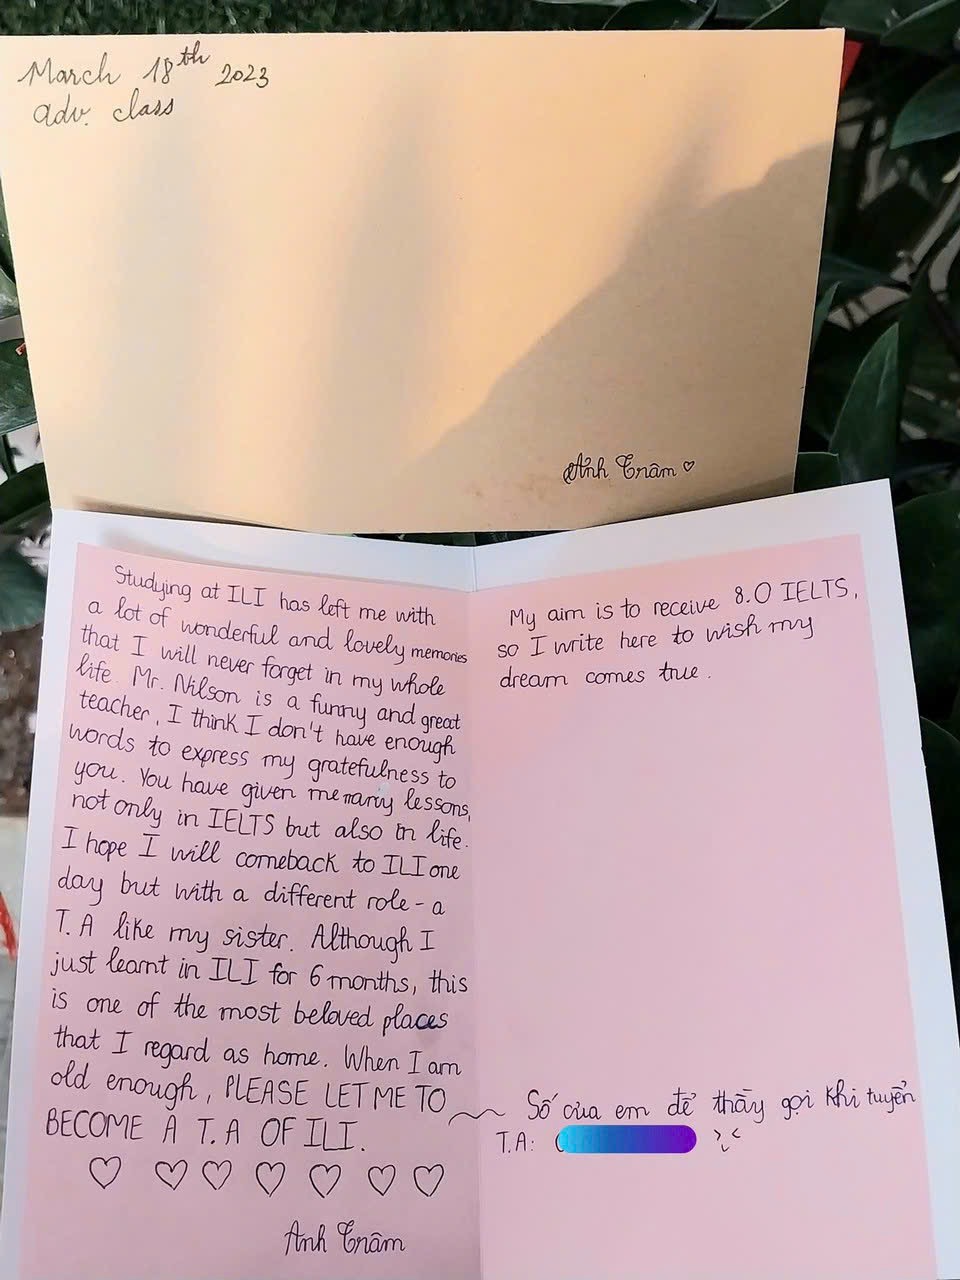 March 18th 2023
adv. class
Anh Trâm ♡
Studying at ILI has left me with
a lot of wonderful and lovely memories
that I will never forget in my whole
life. Mr. Nilson is a funny and great
teacher, I think I don't have enough
words to express my gratefulness to
you. You have given me many lessons,
not only in IELTS but also in life.
I hope I will comeback to ILI one
day but with a different role - a
T.A like my sister. Although I
just learnt in ILI for 6 months, this
is one of the most beloved places
that I regard as home. When I am
old enough, PLEASE LET ME TO
BECOME A T.A OF ILI.
♡ ♡ ♡ ♡ ♡ ♡ ♡
Anh Trâm
My aim is to receive 8.0 IELTS,
so I write here to wish my
dream comes true.
Số của em để thầy gọi khi tuyển
T.A: